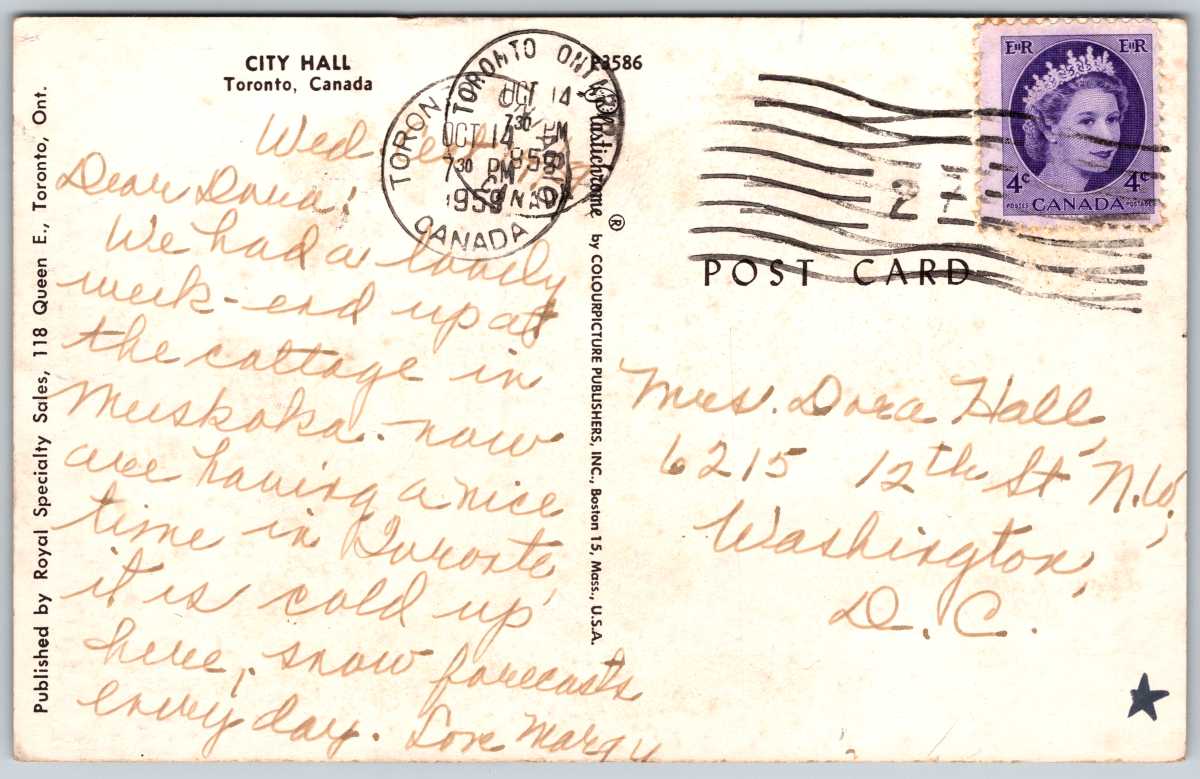 CITY HALL
Toronto, Canada
P3586
Published by Royal Specialty Sales, 118 Queen E., Toronto, Ont.
Wed
Dear Dora,
We had a lovely
week-end up at
the cottage in
Muskoka. now
are having a nice
time in Toronto,
it is cold up
here, snow forecasts
every day. Love Margy
Plastichrome ® by COLOURPICTURE PUBLISHERS, INC., Boston 15, Mass., U.S.A.
TORONTO ONT
OCT 14
7 30 PM
CANADA
TORONTO
OCT 14
7 30 PM
1959
CANADA
EIIR EIIR
4c 4c
POSTES CANADA POSTAGE
POST CARD
Mrs. Dora Hall,
6215 12th St N.W.,
Washington,
D.C.